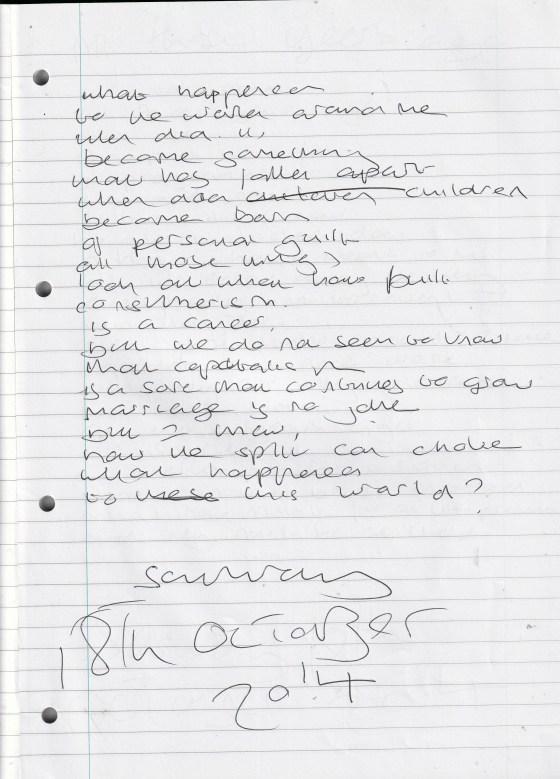 what happened
to the world around me
when did it,
become something
that has fallen apart
when did children
became born
of personal guilt
all those things
look at what have built
consumerism.
is a career,
but we do not seem to know
that capitalism
is a sore that continues to grow
marriage is no joke
but I know,
how the split can choke
what happened
to these this world?
18th October
2014